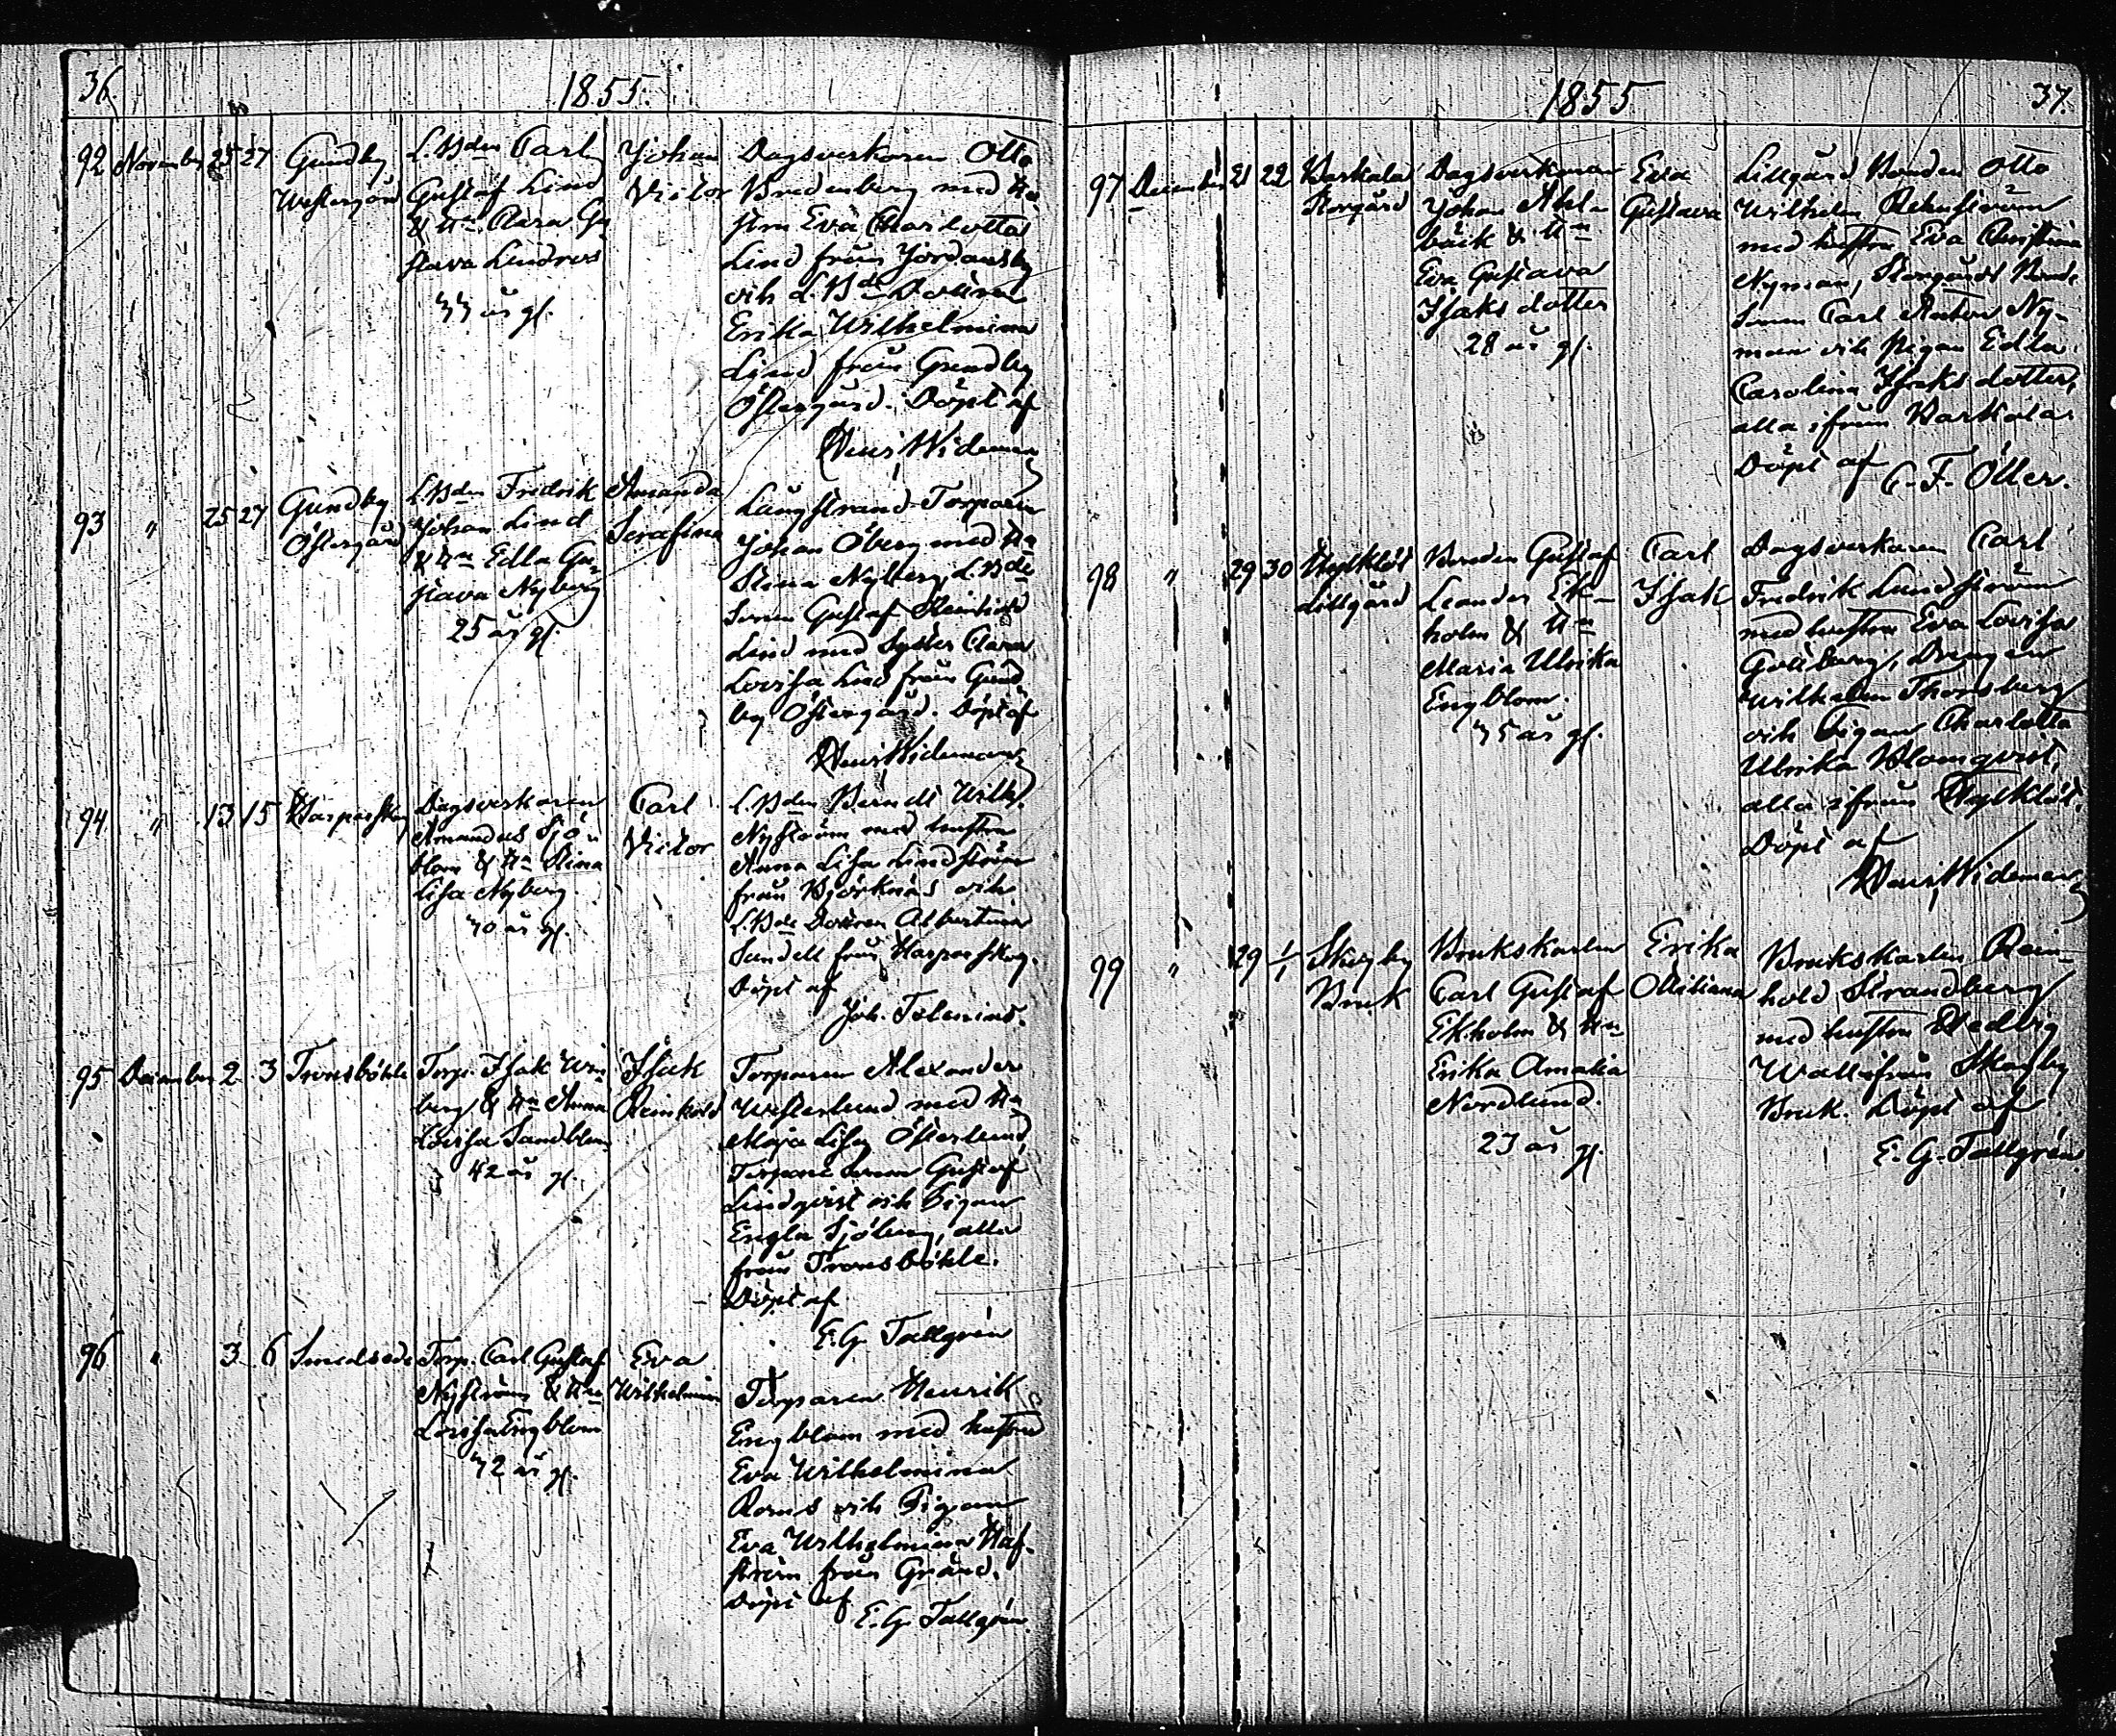 36.
1855.
92 November 25 27 Gundby Westergård
L.Bden Carl
Gustaf Lind
& Hu Clara Gu
stava Lindros
33 år gl.
Johan
Victor
Dagsverkaren Otto
Bredenberg med Hu
strun Eva Charlotta
Lind från Jordansby
och L.Bde Dottren
Erika Wilhelmina
Lind från Gundby
Östergård. Döpt af
Wideman
93 " 25 27 Gundby Östergård
L.Bden Fredrik
Johan Lind
& Hu Edla Gu
stava Nyberg
25 år gl.
Amanda
Serafina
Långstrand Torparen
Johan Öberg med Hu
Stina Nyberg, L.Bde
Sonen Gustaf Reinhold
Lind med Syster Clara
Lovisa Lind från Gund
by Östergård. Döpt af
Wideman
94 " 13 15 Harparskog
Dagsverkaren
Amandus Sjö
blom & Hu Stina
Lisa Nyberg
30 år gl.
Carl
Victor
L.Bden Berndt Wilh.
Nyström med hustru
Anna Lisa Lindström
från Björknäs och
L.Bde Dottren Albertina
Sundell från Harparskog.
Döpt af
Joh. Telenius.
95 December 2 3 Tronsböhle
Torp. Isak Win
berg & Hu Anna
Lovisa Sandblom
42 år gl.
Isak
Reinhold
Torparen Alexander
Westerlund med Hu
Maja Lisa Österlund,
Torpare sonen Gustaf
Lindqvist och Pigan
Engla Sjöberg, alla
från Tronsböhle.
Döpt af
E. G. Tallgrén
96 " 3 6 Smedsede
Torp. Carl Gustaf
Nyström & Hu
Lovisa Engblom
32 år gl.
Eva
Wilhelmina
Torparen Henrik
Engblom med hustru
Eva Wilhelmina
Roms och Pigan
Eva Wilhelmina Haf-
ström från Gränd.
Döpt af
E. G. Tallgrén.
1855
37.
97 December 21 22 Baskala Storgård
Dagsverkaren
Johan Ahla
bäck & Hu
Eva Gustava
Isaks dotter
28 år gl.
Eva
Gustava
Lillgård Bonden Otto
Wilhelm Rehnström
med hustru Eva Christina
Nyman, Storgårds Bonde
Sonen Carl Anton Ny-
man och Pigan Edla
Carolina Isaks dotter,
alla ifrån Baskala
Döpt af C. F. Öller.
98 " 29 30 Lillgård
Bonden Gustaf
Leander Ek-
holm & Hu
Maria Ulrika
Engblom.
35 år gl.
Carl
Isak
Dagsverkaren Carl
Fredrik Lundström
med hustru Eva Lovisa
Göteberg, Drengen
Wilhelm Thorsberg
och Pigan Charlotta
Ulrika Blomqvist,
alla ifrån
Döpt af
Wideman
99 " 29 1/1 Skogby Bruk
Brukskarlen
Carl Gustaf
Ekholm & Hu
Erika Amalia
Nordlund.
23 år gl.
Erika
Brukskarlen Rein-
hold Strandberg
med hustru Hedvig
Wall ifrån Skogby
Bruk. Döpt af
E. G. Tallgrén